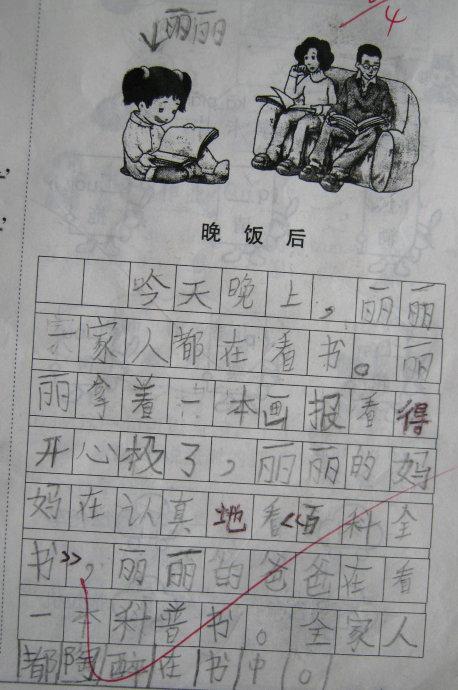 丽丽
4
晚饭后
今天晚上，丽丽
一家人都在看书。丽
丽拿着一本画报看得
开心极了，丽丽的妈
妈在认真地看《百科全
书》，丽丽的爸爸在看
一本科普书。全家人
都陶醉在书中。